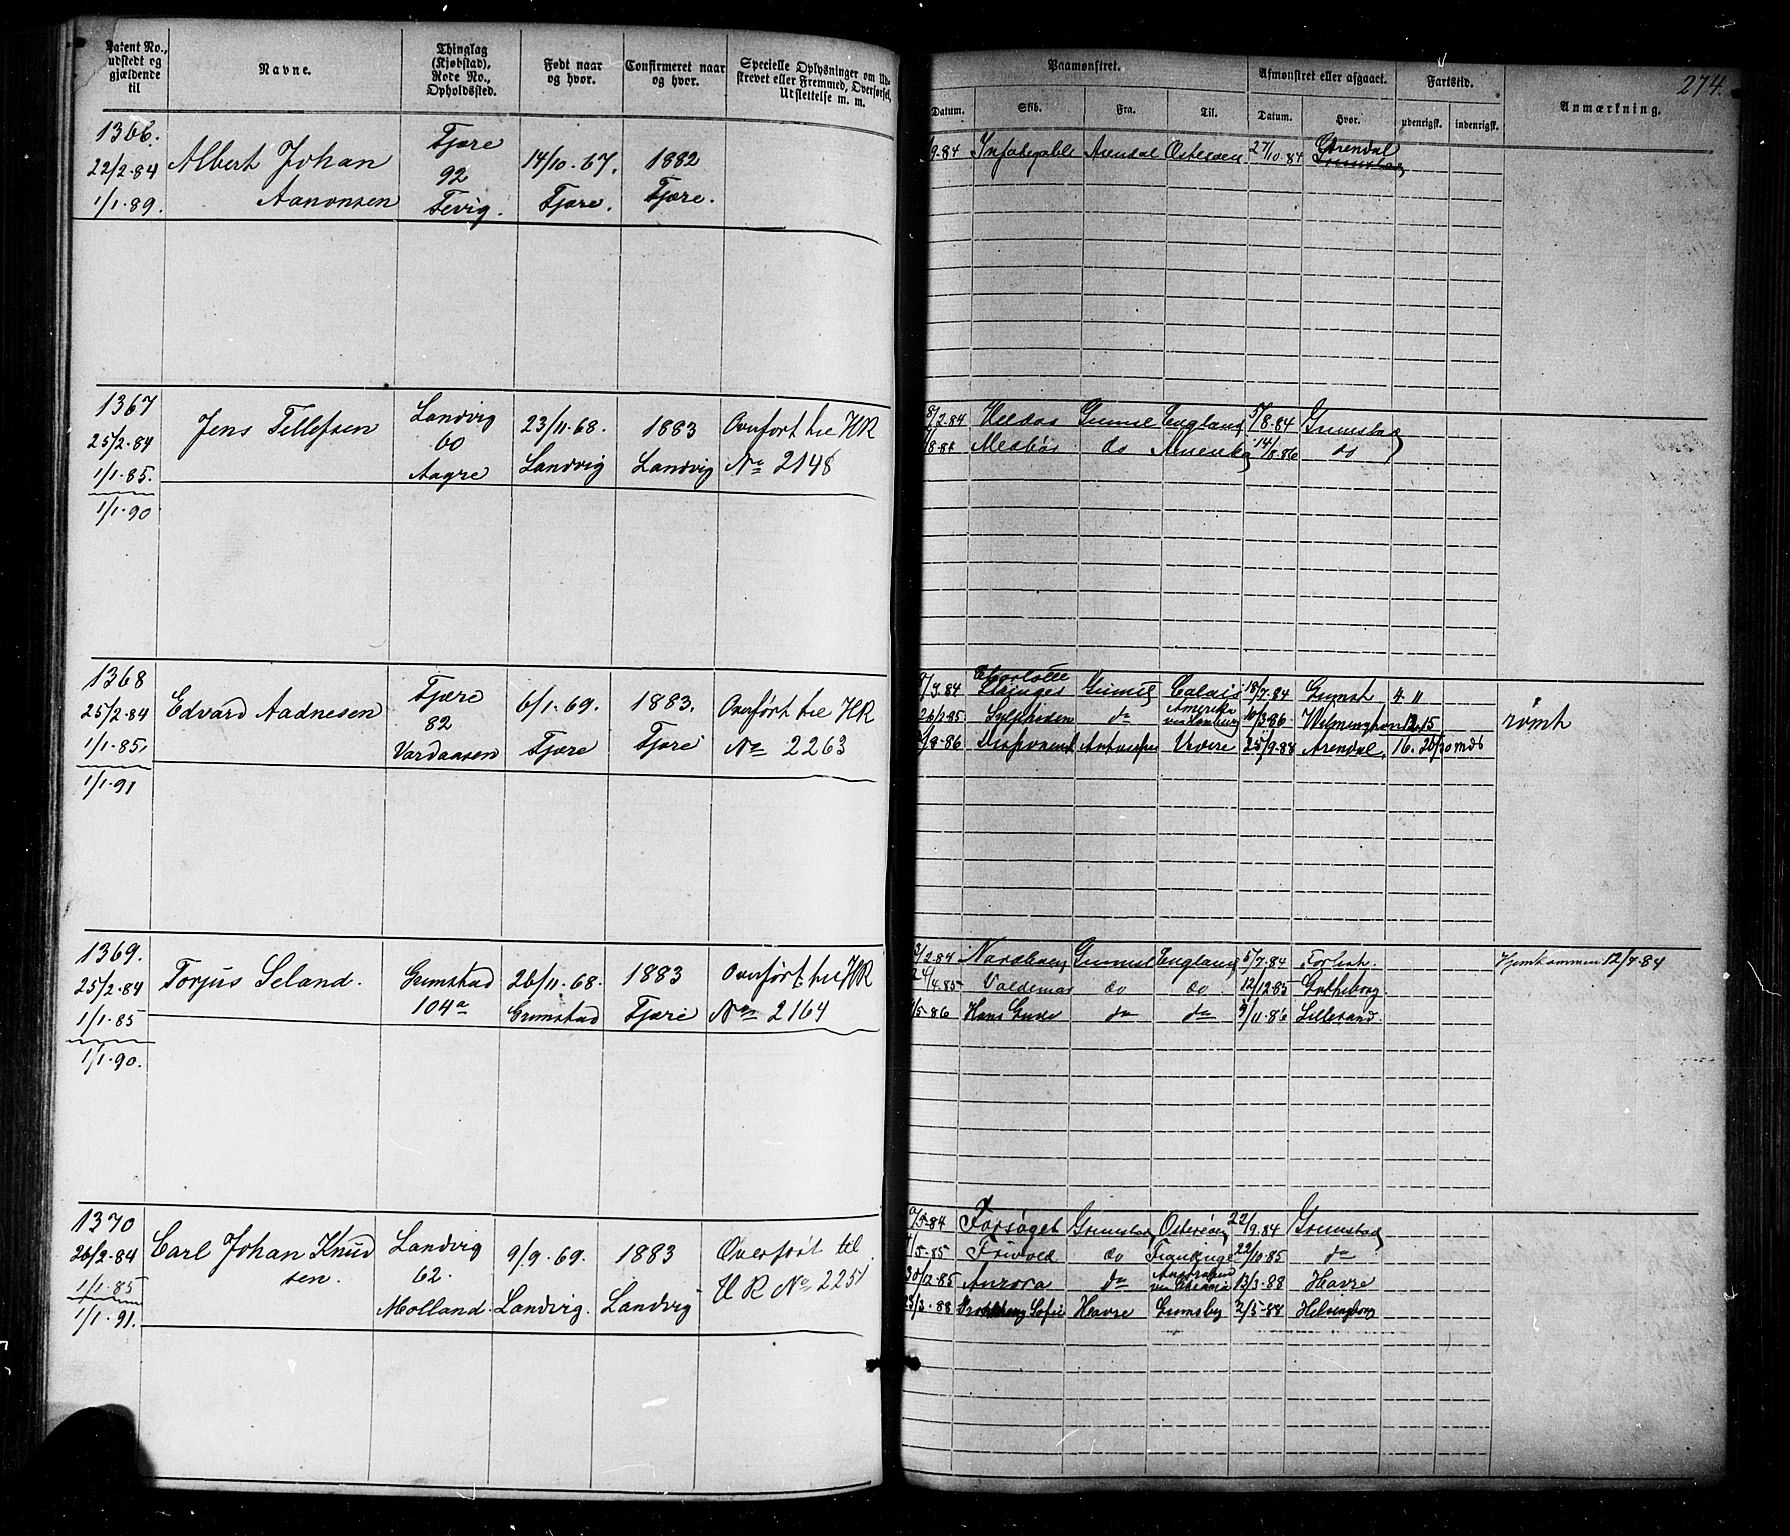 Patent No., udstedt og gjældende til
Navne.
Thinglag (Kjøbstad), Rode No., Opholdssted.
Født naar og hvor.
Confirmeret naar og hvor.
Specielle Oplysninger om Udskrevet eller Fremmed, Overførsel, Utslettelse m. m.
Paamønstret.
Datum.
Skib.
Fra.
Til.
Afmønstret eller afgaaet.
Datum.
Hvor.
Fartstid.
udenrigsk.
indenrigsk.
Anmærkning.
274.
1366. Fjære
22/2-84 Albert Johan 92 14/10-67. 1882
1/1-89. Aanonsen Fevig. Fjære. Fjære.
9-84 Arendal Østersøen 27/10-84 Arendal
1367 Landvig
25/2-84 Jens Tellefsen 60 23/11-68. 1883 Overført til HR
1/1-85. Aagre Landvig Landvig No 2148
1/1-90
2-84 England 5/8-84 Grimstad
do 14/8-86 do
1368 Fjære
25/2-84 Edvard Aadnesen 82 6/1-69. 1883. Overført til HR
1/1-85. Vardaasen Fjære Fjære No 2263
1/1-91
Charlotte
3-84 Calais 18/7-84 Grimst 4. 11
26/2-85 Sylphiden do Amerika 10/3-86 Wilmington 12.15 rømt
8-86 Antwerpen 25/9-88 Arendal. 16. 20
1369. Grimstad
25/2-84 Torjus Seland. 104a 26/11-68. 1883 Overført til HR
1/1-85 Grimstad Fjære No 2164
1/1-90.
2-84 England 5/7-84 Forlist. Hjemkommen 12/7-84
4-85 Valdemar do do 12/12-85 Gøtheborg
5-86 Hans Gude do do 11-86 Lillesand.
1370 Landvig
26/2-84 Carl Johan Knud 62. 9/9-69. 1883 Overført til
1/1-85 sen. Molland. Landvig. Landvig HR No 2251
1/1-91.
5-84 Forsøget Grimstad Østersøen 22/9-84 Grimstad
5-85 Frivold do 22/10-85 do
30/12-85 Aurora do 13/3-88 Havre
3-88 Sofie Havre Grimsby 2/5-88 Helsingborg